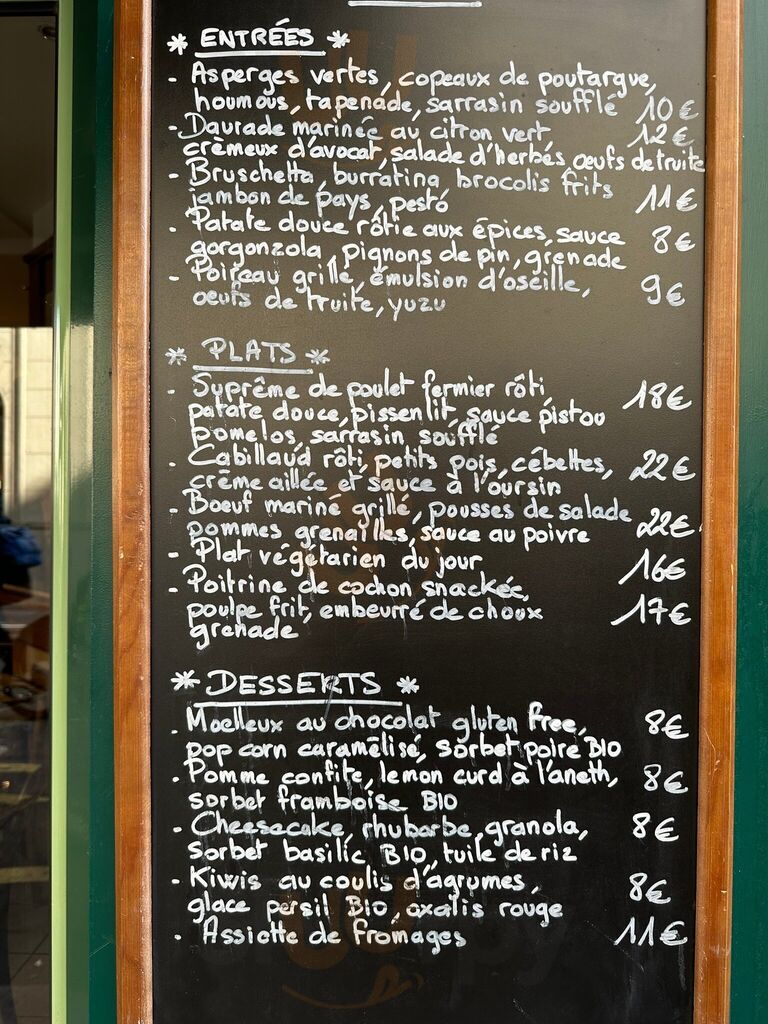 * ENTRÉES *
- Asperges vertes, copeaux de poutargue,
houmous, tapenade, sarrasin soufflé 10€
- Daurade marinée au citron vert 12€
crèmeux d'avocat, salade d'herbes, oeufs de truite
- Bruschetta, burratina, brocolis frits
jambon de pays, pesto 11€
- Patate douce rôtie aux épices, sauce 8€
gorgonzola, pignons de pin, grenade
- Poireau grillé, émulsion d'oseille, 9€
oeufs de truite, yuzu
* PLATS *
- Suprême de poulet fermier rôti 18€
patate douce, pissenlit, sauce pistou
pomelos, sarrasin soufflé
- Cabillaud rôti, petits pois, cébettes, 22€
crème aillée et sauce à l'oursin
- Boeuf mariné grillé, pousses de salade
pommes grenailles, sauce au poivre 22€
- Plat végétarien du jour 16€
- Poitrine de cochon snackée,
poulpe frit, embeurré de choux 17€
grenade
* DESSERTS *
- Moelleux au chocolat gluten free, 8€
pop corn caramélisé, sorbet poire BIO
- Pomme confite, lemon curd à l'aneth, 8€
sorbet framboise BIO
- Cheesecake, rhubarbe, granola, 8€
sorbet basilic BIO, tuile de riz
- Kiwis au coulis d'agrumes, 8€
glace persil BIO, oxalis rouge
- Assiette de fromages 11€